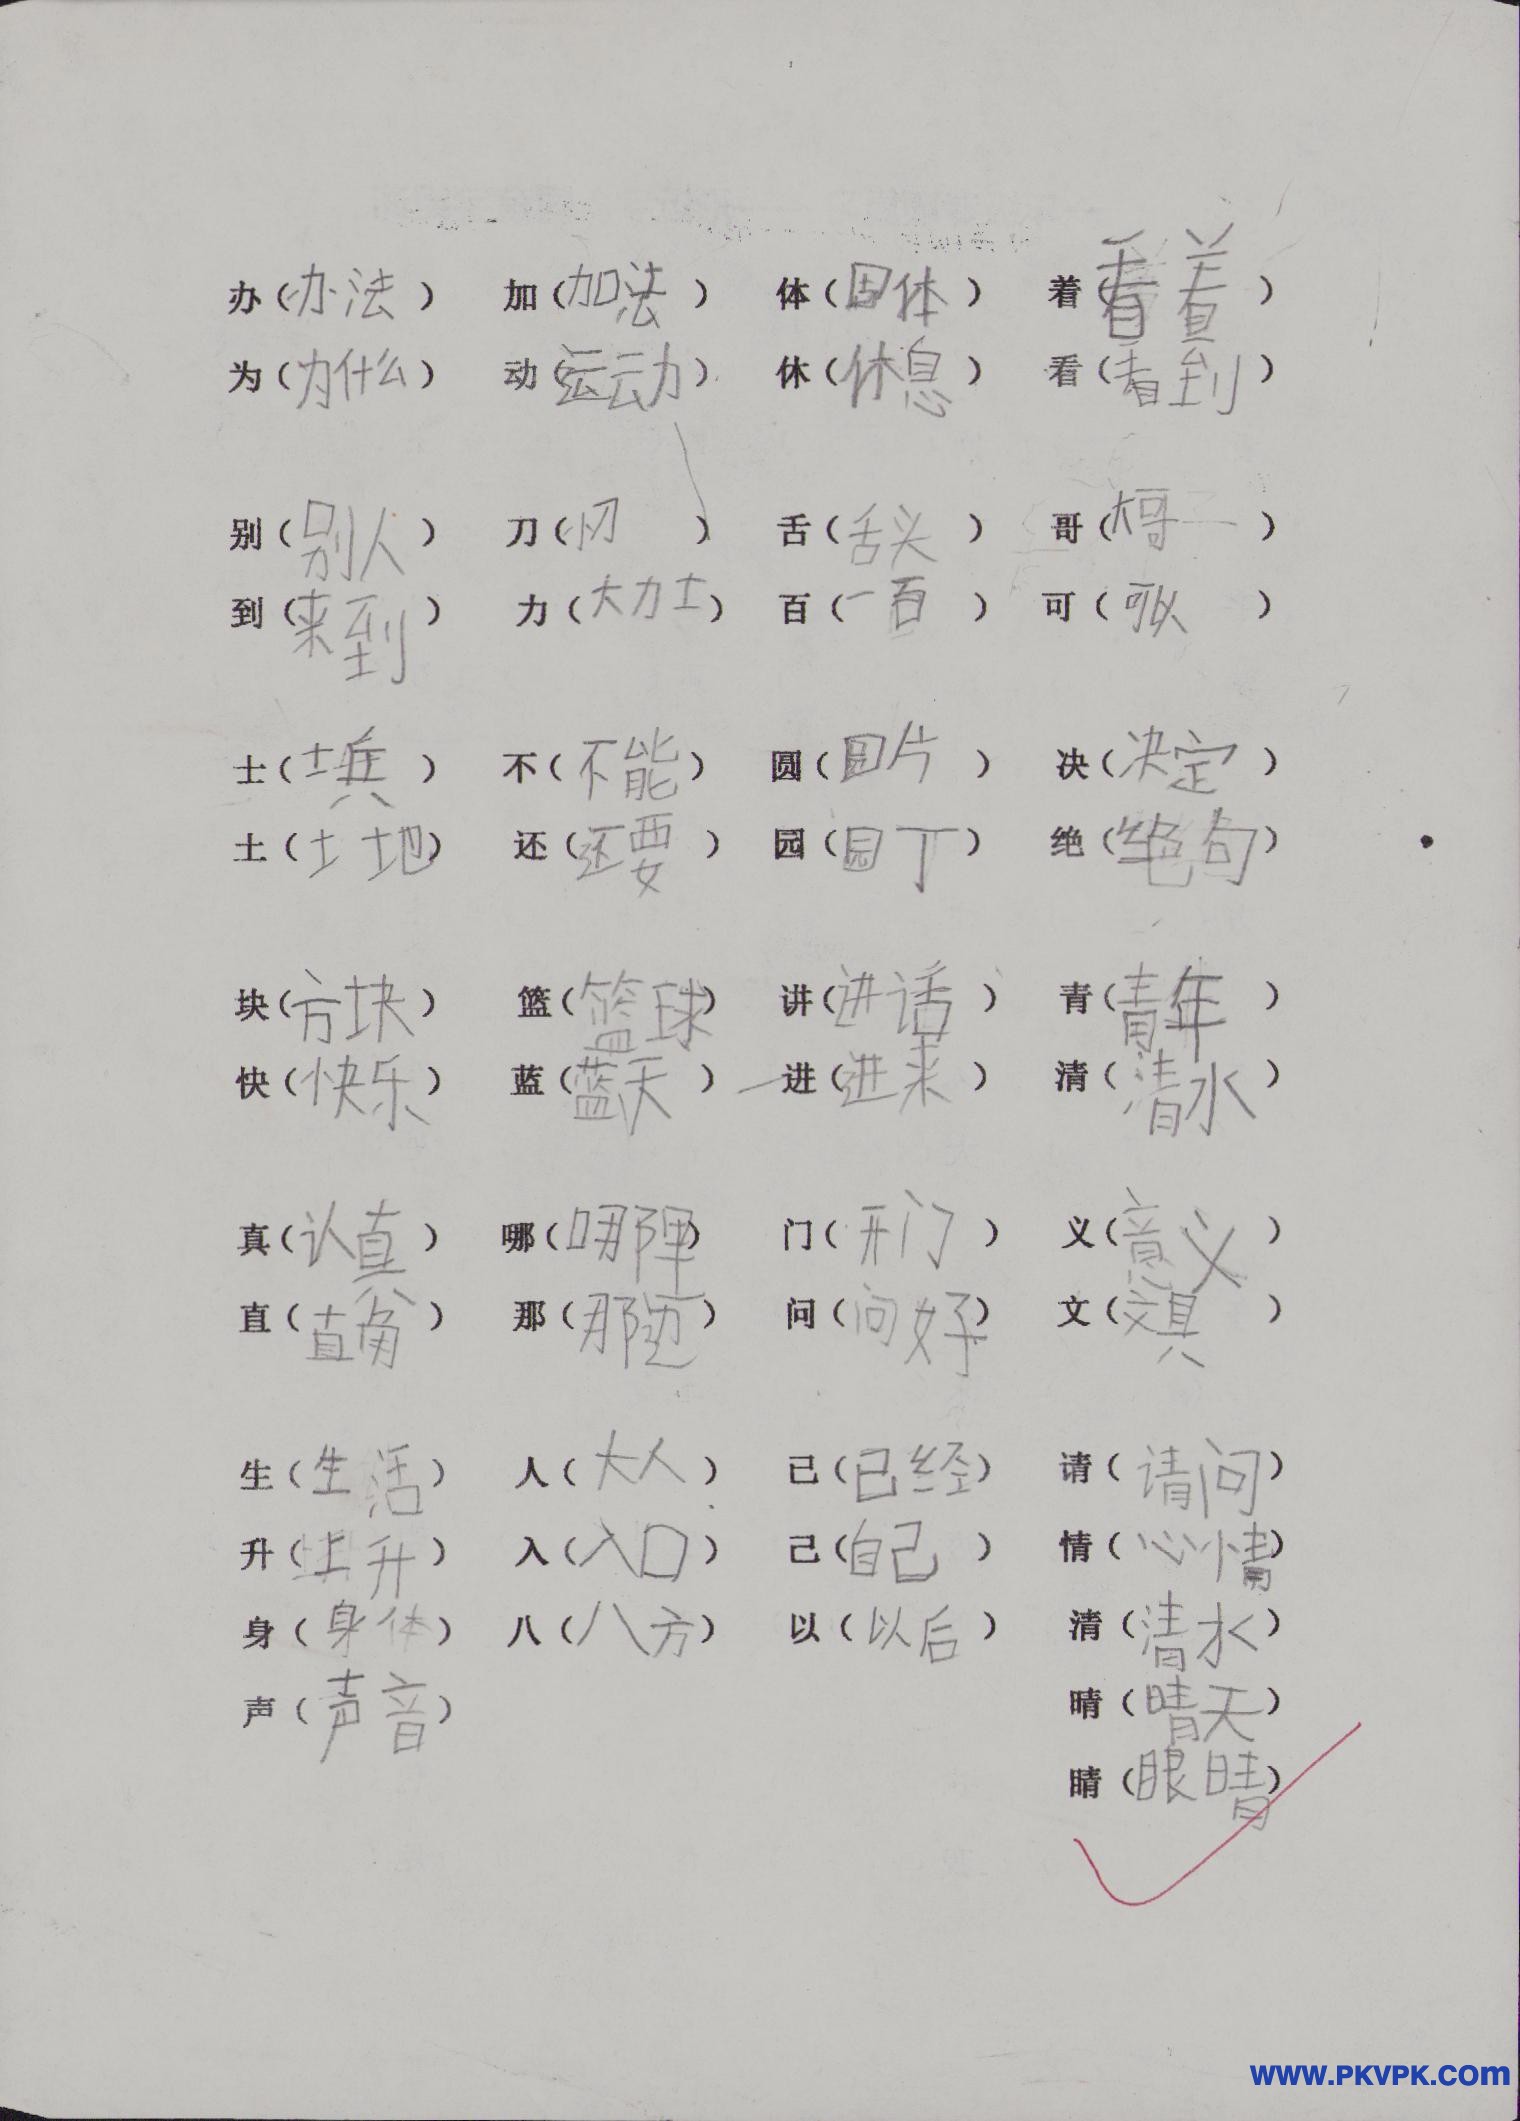 办（办法） 加（加法） 体（固体） 着（看着）
为（为什么） 动（运动） 休（休息） 看（看到）
别（别人） 刀（小刀） 舌（舌头） 哥（大哥）
到（来到） 力（大力士） 百（一百） 可（可以）
士（士兵） 不（不能） 圆（圆片） 决（决定）
土（土地） 还（还要） 园（园丁） 绝（绝句）
块（方块） 篮（篮球） 讲（讲话） 青（青年）
快（快乐） 蓝（蓝天） 进（进来） 清（清水）
真（认真） 哪（哪里） 门（开门） 义（意义）
直（直角） 那（那边） 问（问好） 文（文具）
生（生活） 人（大人） 已（已经） 请（请问）
升（上升） 入（入口） 己（自己） 情（心情）
身（身体） 八（八方） 以（以后） 清（清水）
声（声音） 晴（晴天）
睛（眼睛）
www.PKVPK.com